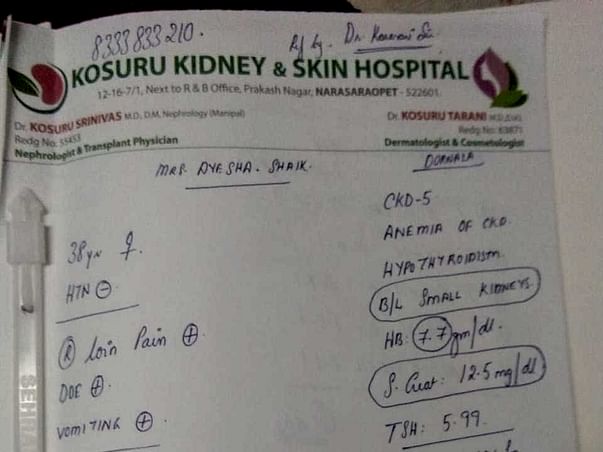 8333833210.
Rf by. Dr.
KOSURU KIDNEY & SKIN HOSPITAL
12-16-7/1, Next to R & B Office, Prakash Nagar, NARASARAOPET - 522601.
Dr. KOSURU SRINIVAS M.D, D.M, Nephrology (Manipal)
Redg No: 55453
Nephrologist & Transplant Physician
Dr. KOSURU TARANI M.D
Redg No: 63871
Dermatologist & Cosmetologist
MRS. AYESHA. SHAIK.
DORNALA
38yr ♀.
HTN ⊖
Ⓡ loin Pain ⊕
DOE ⊕.
VOMITING ⊕
CKD-5
ANEMIA OF CKD.
HYPOTHYROIDISM.
B/L SMALL KIDNEYS.
HB: 7.7 gm/dl.
S. Creat: 12.5 mg/dl
TSH: 5.99.